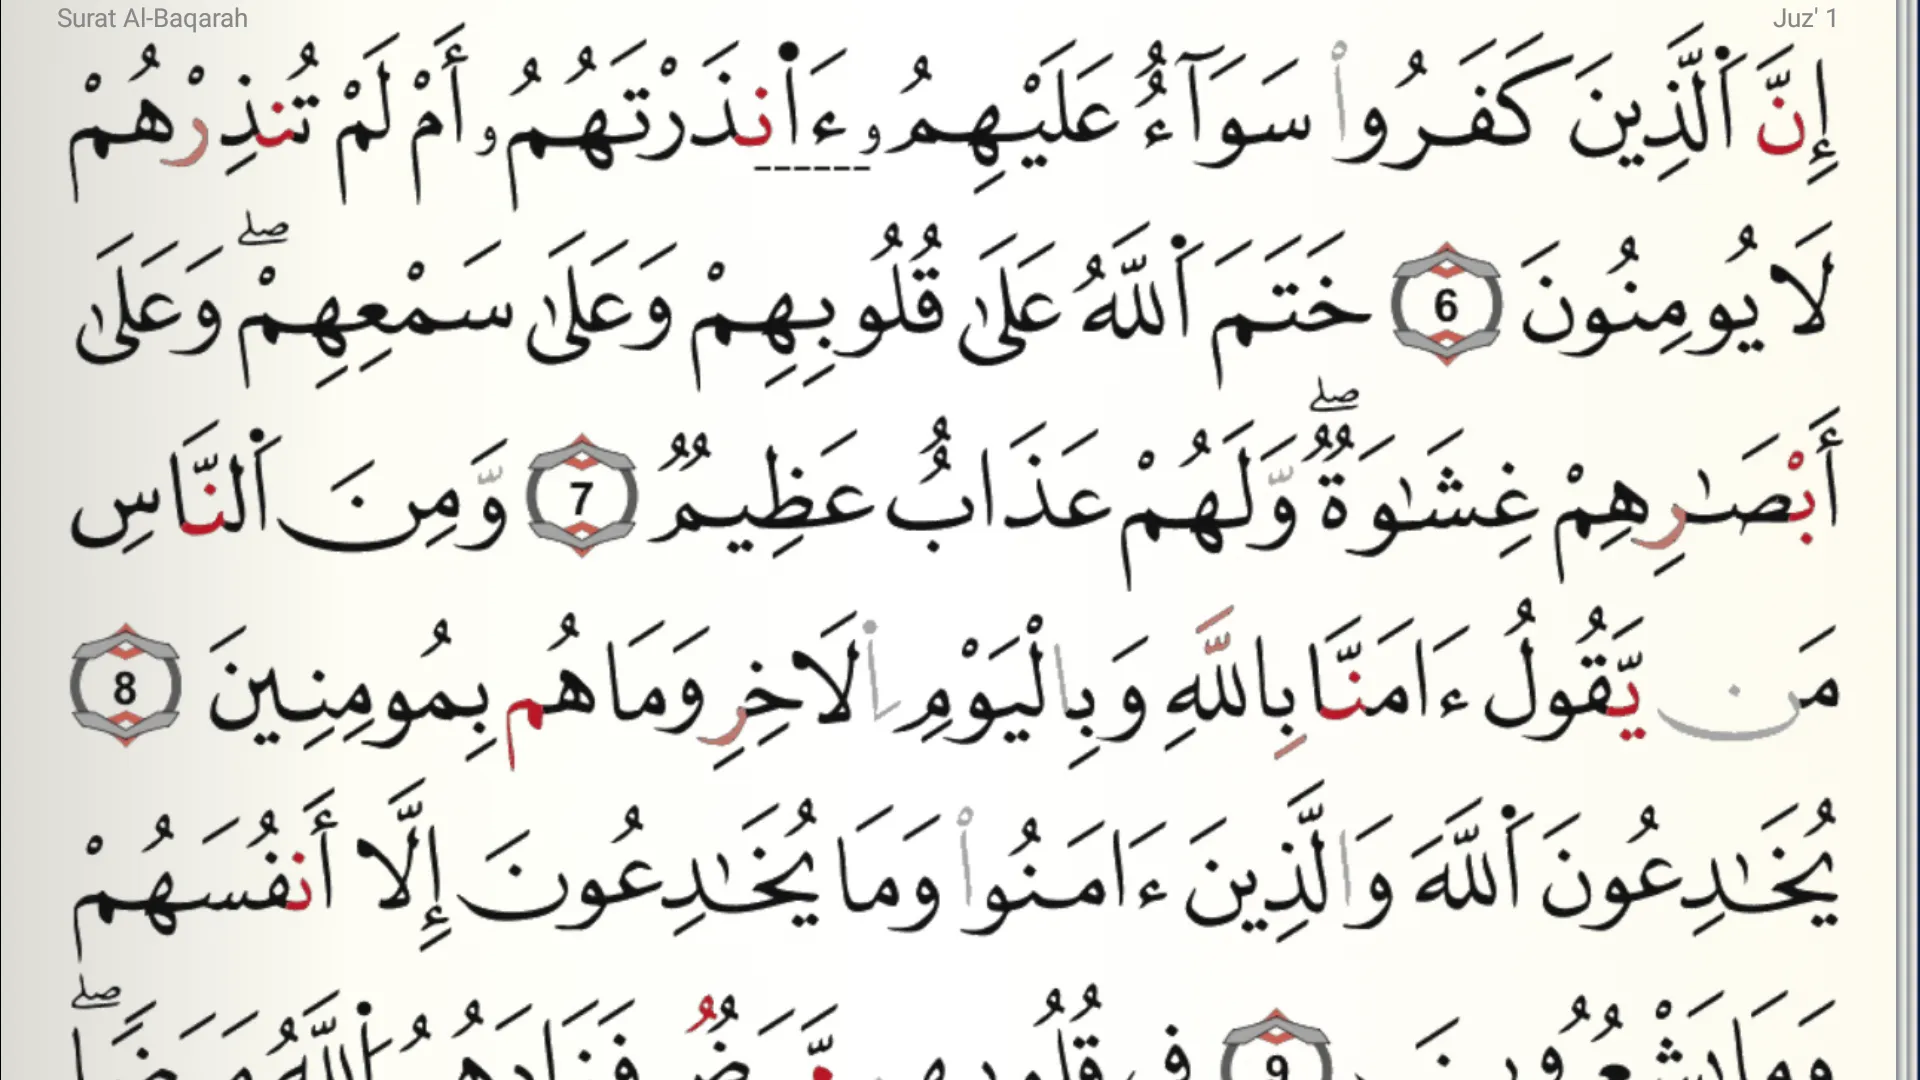 Surat Al-Baqarah
Juz' 1
إِنَّ اَ۬لَّذِينَ كَفَرُواْ سَوَآءٌ عَلَيْهِمُۥٓ ءَآنذَرْتَهُمُۥٓ أَمْ لَمْ تُنذِرْهُمْ
لَا يُومِنُونَ 6 خَتَمَ اَ۬للَّهُ عَلَىٰ قُلُوبِهِمْ وَعَلَىٰ سَمْعِهِمْۖ وَعَلَىٰ
أَبْصَٰرِهِمْ غِشَٰوَةٌۖ وَّلَهُمْ عَذَابٌ عَظِيمٌ 7 وَّمِنَ اَ۬لنَّاسِ
مَنْ يَّقُولُ ءَامَنَّا بِاللَّهِ وَبِالْيَوْمِ اِ۬لَاخِرِ وَمَا هُم بِمُومِنِينَ 8
يُخَٰدِعُونَ اَ۬للَّهَ وَالَّذِينَ ءَامَنُواْ وَمَا يُخَٰدِعُونَ إِلَّا أَنفُسَهُمْ
وَمَا يَشْعُرُونَ 9 فِي قُلُوبِهِم مَّرَضٌ فَزَادَهُمُ اُ۬للَّهُ مَرَضاًۖ